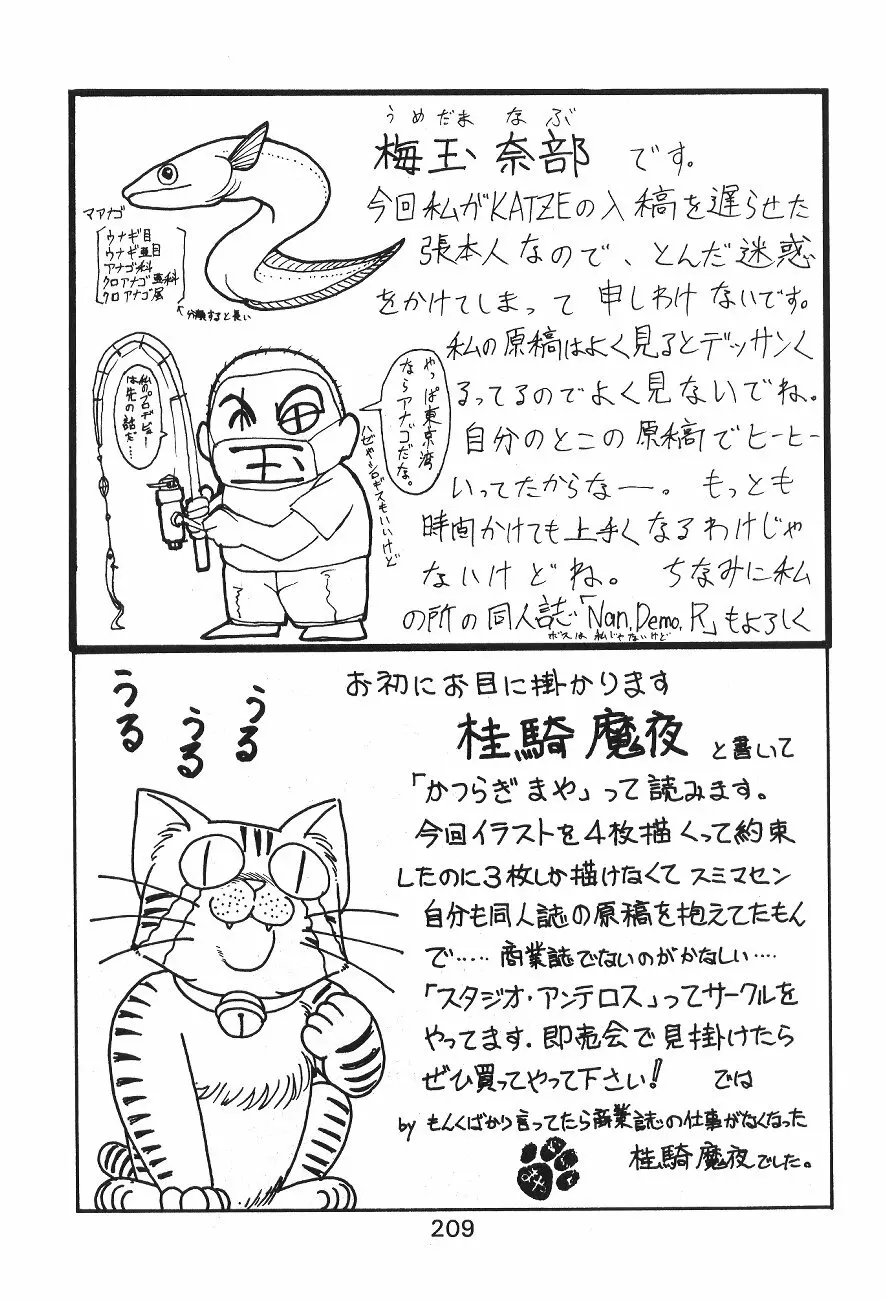 うめだま なぶ
梅玉 奈部 です。
今回私がKATZEの入稿を遅らせた
張本人なので、とんだ迷惑
をかけてしまって 申しわけないです。
私の原稿はよく見るとデッサンく
るってるのでよく見ないでね。
自分のとこの原稿でヒーヒー
いってたからなー。 もっとも
時間かけても上手くなるわけじゃ
ないけどね。 ちなみに私
の所の同人誌「Nan,Demo,R」もよろしく
ボスは私じゃないけど
マアナゴ
ウナギ目
ウナギ亜目
アナゴ科
クロアナゴ亜科
クロアナゴ属
↖分類すると長い
やっぱ東京湾
ならアナゴだな。
ハゼやシロギスもいいけど
私のプロデビュー
は先の話だ…
玉
うる
うる
うる
お初にお目に掛かります
桂騎魔夜 と書いて
「かつらぎまや」って読みます。
今回イラストを4枚描くって約束
したのに3枚しか描けなくてスミマセン
自分も同人誌の原稿を抱えてたもん
で…… 商業誌でないのがかなしい……
「スタジオ・アンテロス」ってサークルを
やってます. 即売会で見掛けたら
ぜひ買ってやって下さい! では
by もんくばかり言ってたら商業誌の仕事がなくなった
桂騎魔夜でした。
209